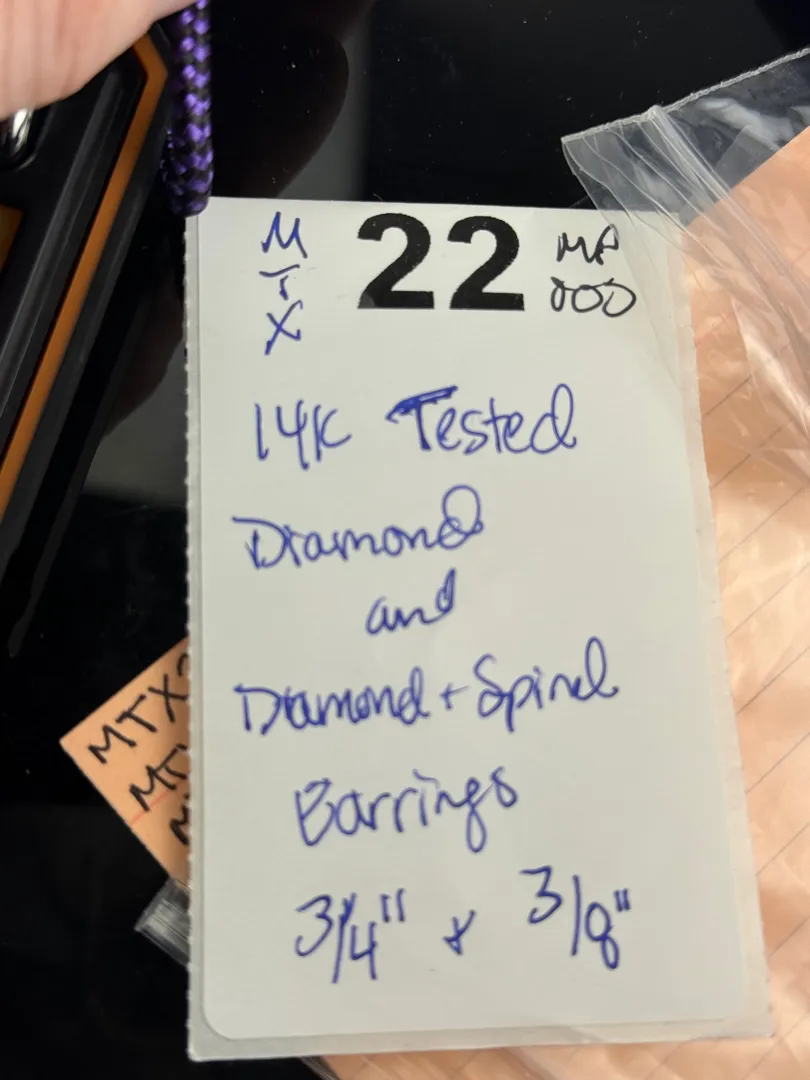 M
T
X
22
MP
000
14K Tested
Diamond
and
Diamond + Spinel
Earrings
3/4" & 3/8"
MTX
MT